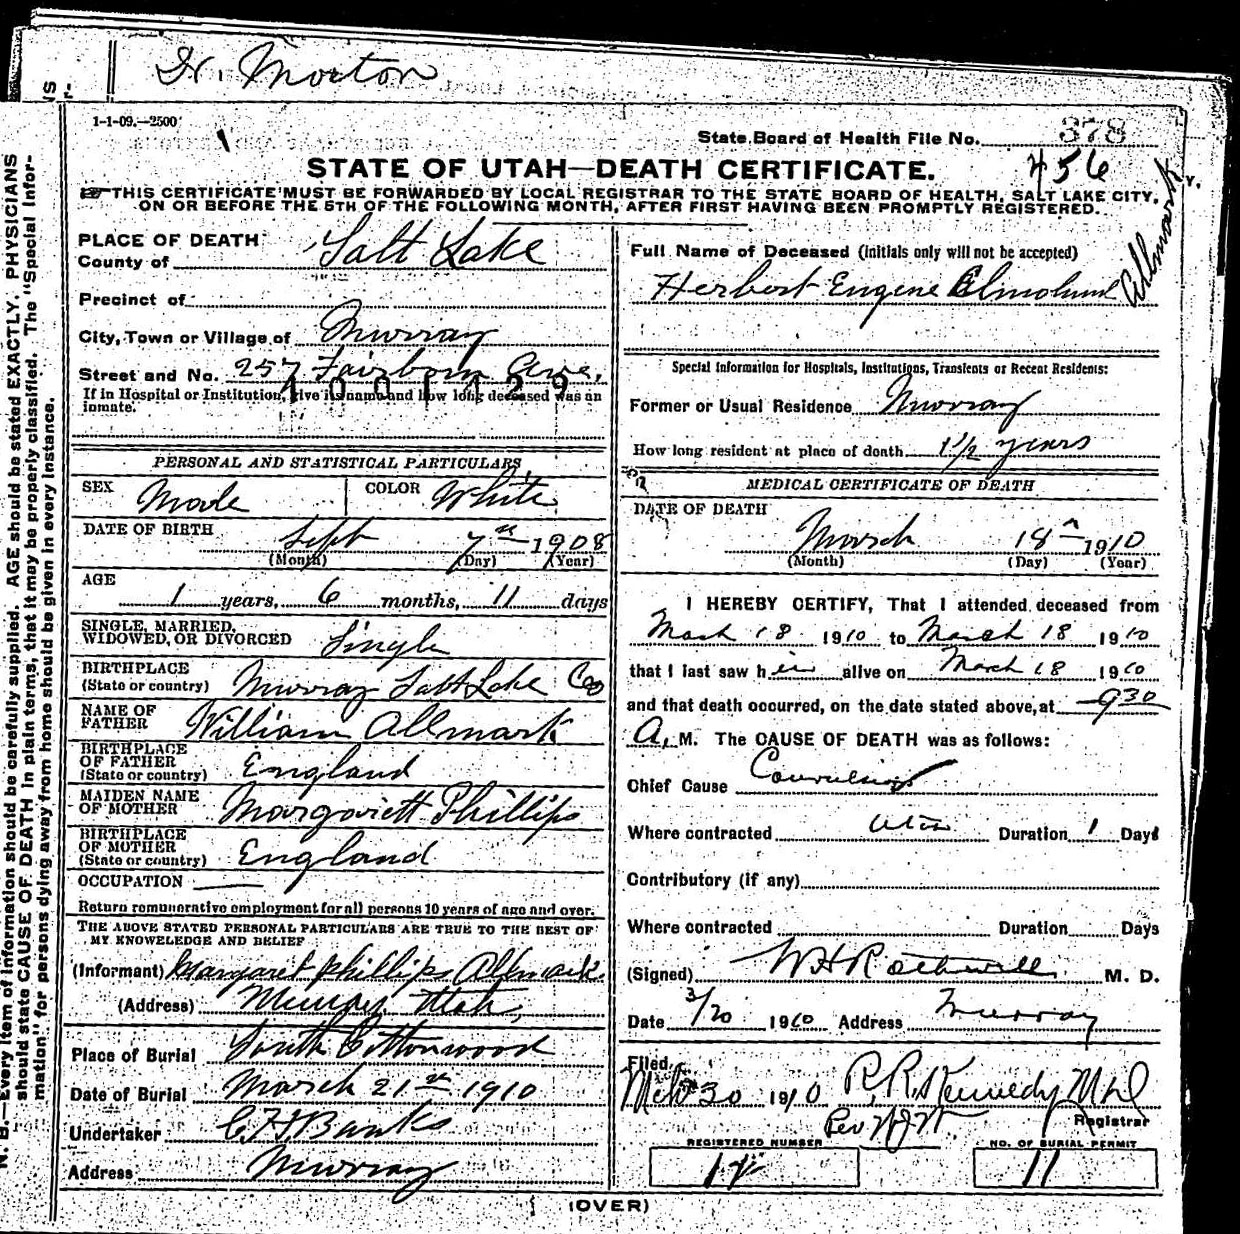 Dr. Morton
1-1-09.—2500
State Board of Health File No. 378
456
STATE OF UTAH—DEATH CERTIFICATE.
THIS CERTIFICATE MUST BE FORWARDED BY LOCAL REGISTRAR TO THE STATE BOARD OF HEALTH, SALT LAKE CITY,
ON OR BEFORE THE 5TH OF THE FOLLOWING MONTH, AFTER FIRST HAVING BEEN PROMPTLY REGISTERED.
N. B.—Every item of information should be carefully supplied. AGE should be stated EXACTLY. PHYSICIANS
should state CAUSE OF DEATH in plain terms, that it may be properly classified. The "Special Infor-
mation" for persons dying away from home should be given in every instance.
PLACE OF DEATH
County of Salt Lake
Precinct of
City, Town or Village of Murray
Street and No. 257 Fairborn Ave.
4001429
If in Hospital or Institution, give its name and how long deceased was an
inmate.
PERSONAL AND STATISTICAL PARTICULARS
SEX Male COLOR White
DATE OF BIRTH Sept 7th 1908
(Month) (Day) (Year)
AGE
1 years, 6 months, 11 days
SINGLE, MARRIED,
WIDOWED, OR DIVORCED Single
BIRTHPLACE
(State or country) Murray Salt Lake Co
NAME OF
FATHER William Allmark
BIRTHPLACE
OF FATHER
(State or country) England
MAIDEN NAME
OF MOTHER Margarett Phillips
BIRTHPLACE
OF MOTHER
(State or country) England
OCCUPATION
Return remunerative employment for all persons 10 years of age and over.
THE ABOVE STATED PERSONAL PARTICULARS ARE TRUE TO THE BEST OF
MY KNOWLEDGE AND BELIEF
(Informant) Margaret Phillips Allmark
(Address) Murray Utah,
Place of Burial South Cottonwood
Date of Burial March 21st 1910
Undertaker Banks
Address Murray
Full Name of Deceased (initials only will not be accepted)
Herbert Eugene Elmolund
Allmark
Special Information for Hospitals, Institutions, Transients or Recent Residents:
Former or Usual Residence Murray
How long resident at place of death 1 1/2 years
MEDICAL CERTIFICATE OF DEATH
DATE OF DEATH
March 18 1910
(Month) (Day) (Year)
I HEREBY CERTIFY, That I attended deceased from
March 18 1910 to March 18 1910
that I last saw him alive on March 18 1910
and that death occurred, on the date stated above, at 930
A. M. The CAUSE OF DEATH was as follows:
Chief Cause Convulsions
Where contracted Utah Duration 1 Days
Contributory (if any)
Where contracted Duration Days
(Signed) W H Rothwell M. D.
Date 3/20 1910 Address Murray
Filed
Mch 30 1910 R. R. Kennedy Md
Registrar
REGISTERED NUMBER
NO. OF BURIAL PERMIT
11
(OVER)